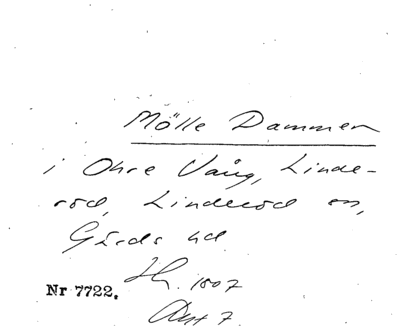 Mölle Dammen
i Ohre Vång, Linde-
röd, Linderöd sn,
Gärds hd
Sk. 1807
Nr 7722.
Akt 7